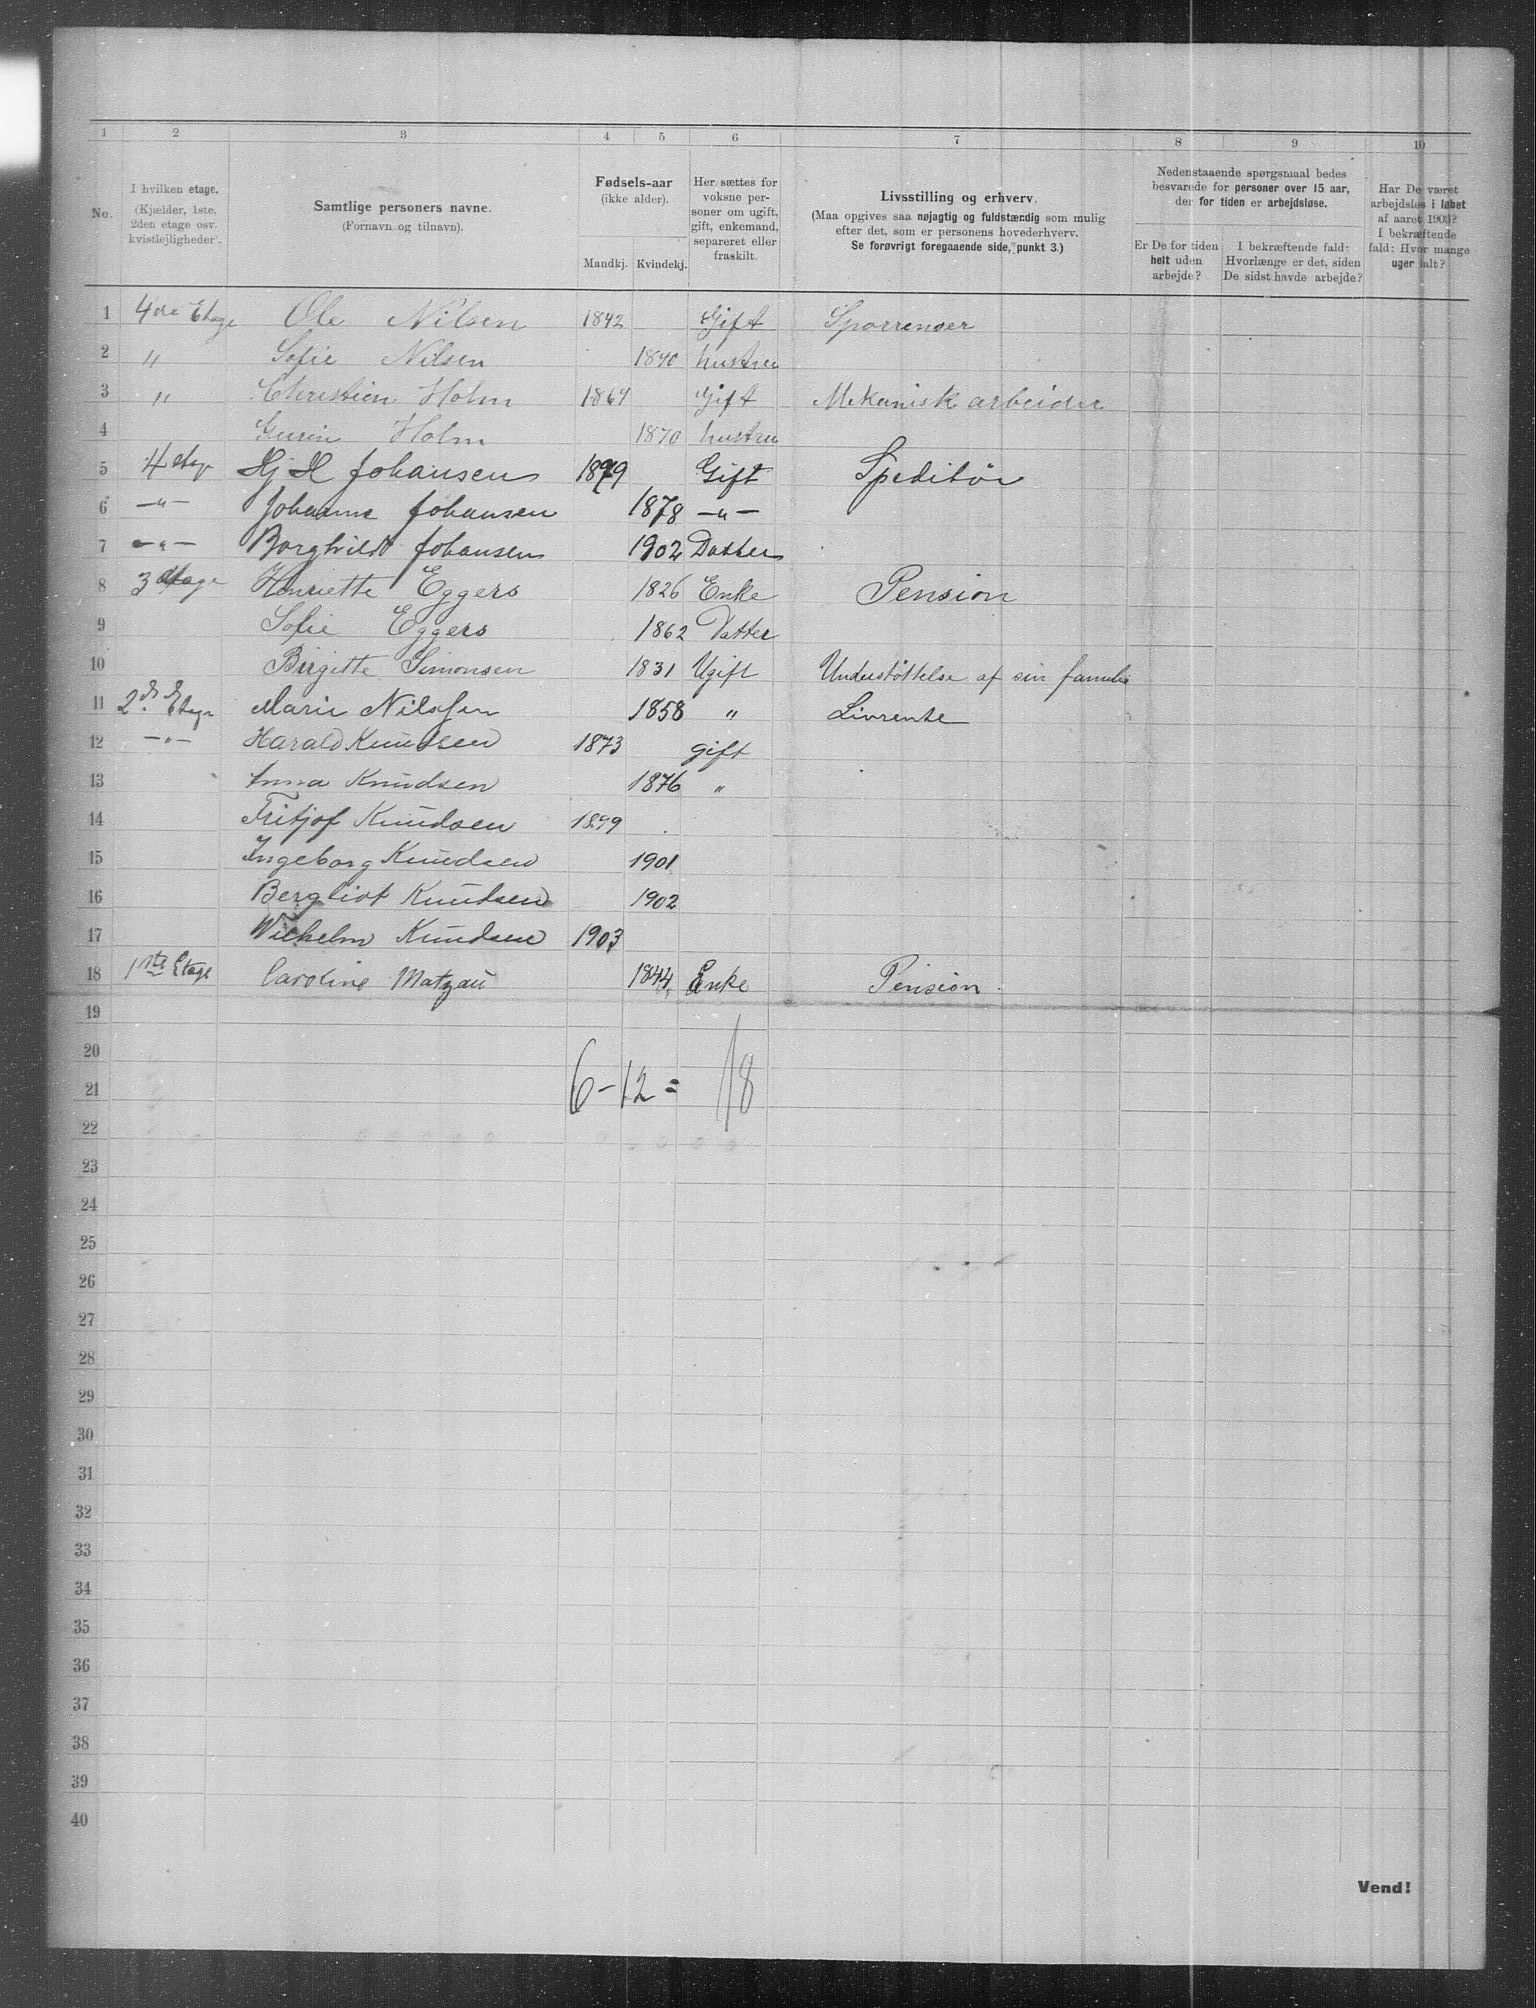 1 2 3 4 5 6 7 8 9 10
No.
I hvilken etage. (Kjælder, 1ste, 2den etage osv. kvistlejligheder).
Samtlige personers navne. (Fornavn og tilnavn).
Fødsels-aar (ikke alder).
Mandkj. Kvindekj.
Her sættes for voksne personer om ugift, gift, enkemand, separeret eller fraskilt.
Livsstilling og erhverv. (Maa opgives saa nøjagtig og fuldstændig som mulig efter det, som er personens hovederhverv. Se forøvrigt foregaaende side, punkt 3.)
Nedenstaaende spørgsmaal bedes besvarede for personer over 15 aar, der for tiden er arbejdsløse.
Er De for tiden helt uden arbejde?
I bekræftende fald: Hvorlænge er det, siden De sidst havde arbejde?
Har De været arbejdsløs i løbet af aaret 1903? I bekræftende fald: Hvor mange uger ialt?
1 4de Etage Ole Nilsen 1842 Gift Sporrenser
2 " Sofie Nilsen 1840 hustru
3 " Christian Holm 1867 Gift Mekanisk arbeider
4 Gurin Holm 1870 hustru
5 4 etage Hj H Johansen 1879 Gift Speditør
6 —"— Johanne Johansen 1878 —"—
7 —"— Borghild Johansen 1902 Datter
8 3 etage Henriette Eggers 1826 Enke Pension
9 Sofie Eggers 1862 Datter
10 Birgitte Simonsen 1831 Ugift Understøttelse af sin familie
11 2den Etage Marie Nilssen 1858 " Livrente
12 —"— Harald Knudsen 1873 gift
13 Anna Knudsen 1876 "
14 Fritjof Knudsen 1899
15 Ingeborg Knudsen 1901
16 Bergliot Knudsen 1902
17 Wilhelm Knudsen 1903
18 1ste Etage Caroline Matzau 1844 Enke Pension.
19
20
21 6-12= 18
22
23
24
25
26
27
28
29
30
31
32
33
34
35
36
37
38
39
40
Vend!